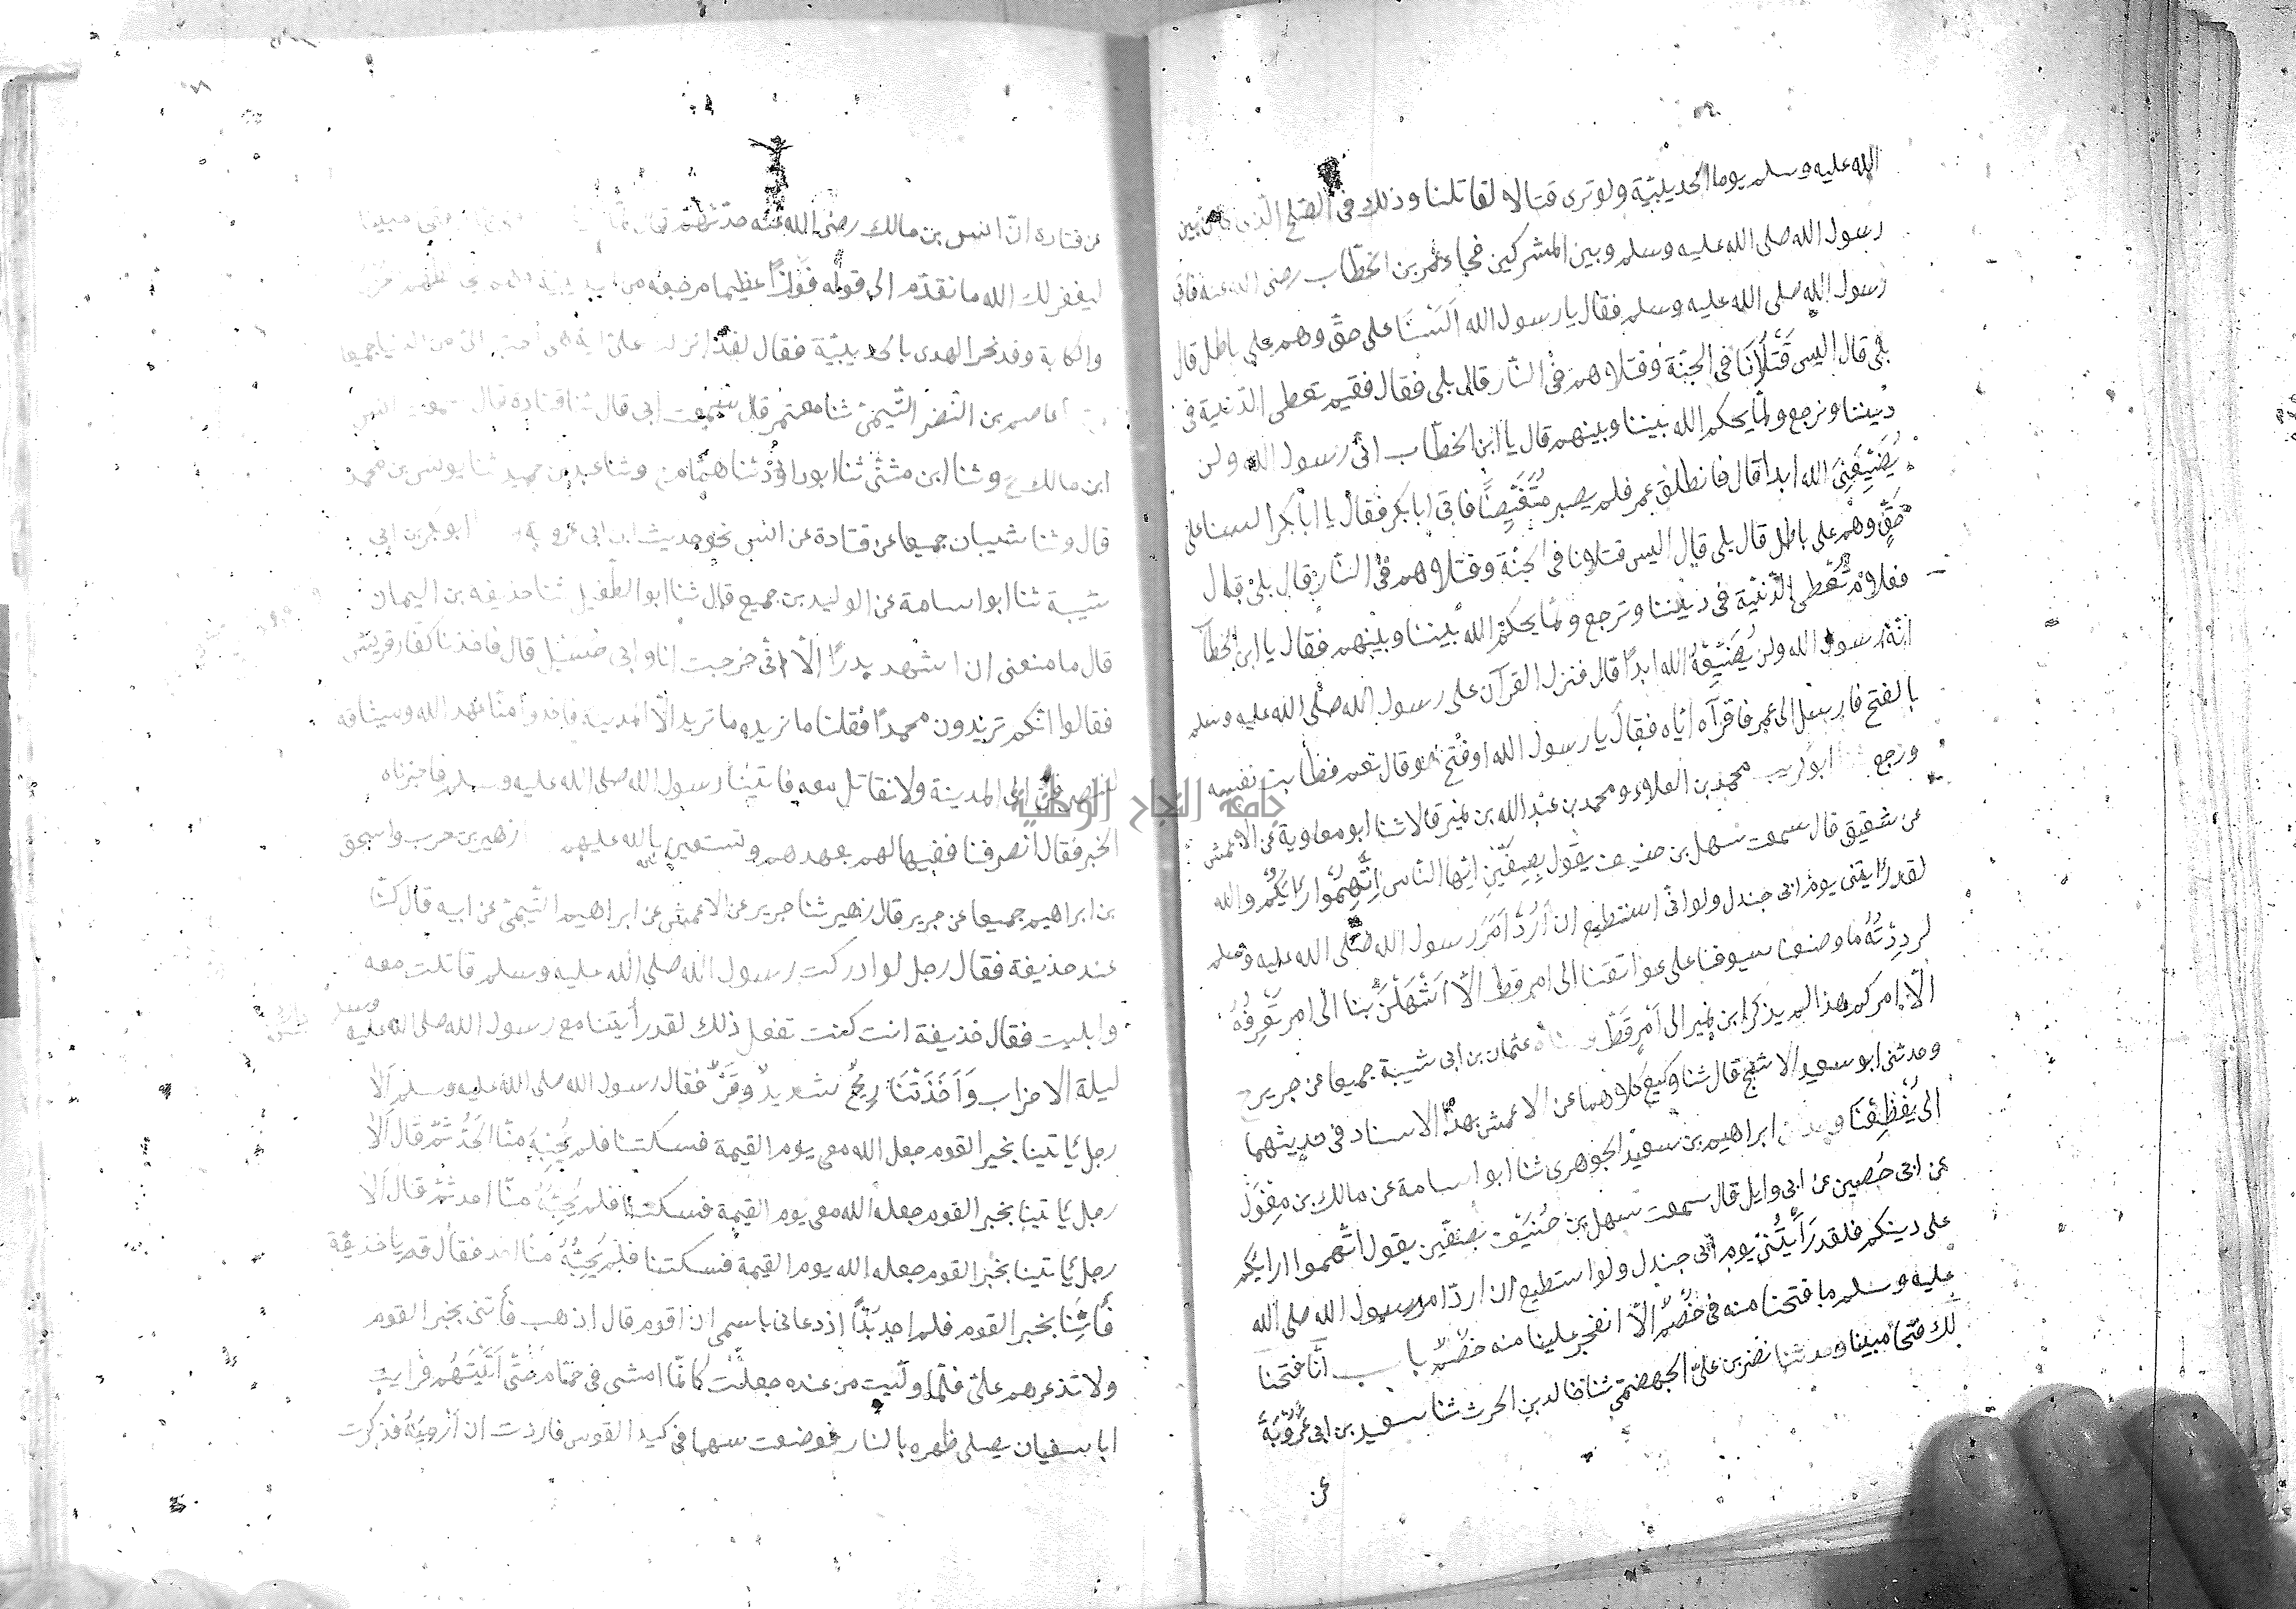 الله عليه وسلم يوم الحديبية ولو ترى قتالا لقاتلنا وذلك فى الصلح الذى كان بين
رسول الله صلى الله عليه وسلم وبين المشركين فجاء عمر بن الخطاب رضى الله عنه فاتى
رسول الله صلى الله عليه وسلم فقال يا رسول الله اَلَسْنَا على حق وهم على باطل قال
بلى قال اليس قَتْلَانَا فى الجنة وقتلاهم فى النار قال بلى فقال ففيم نعطى الدنية فى
ديننا ونرجع ولما يحكم الله بيننا وبينهم قال يا ابن الخطاب انى رسول الله ولن
يُضَيِّعَنِى الله ابدا قال فانطلق عمر فلم يصبر مُتَغَيِّضًا فاتى ابا بكر فقال يا ابا بكر السنا على
حَقٍّ وهُم على باطل قال بلى قال اليس قتلانا فى الجنة وقتلاهم فى النار قال بلى قال
فعلام نُعْطى الدَّنيّة فى ديننا ونرجع ولما يحكم الله بيننا وبينهم فقال يا ابن الخطاب
انه رسول الله ولن يُضَيِّعَهُ الله ابدًا قال فنزل القرآن على رسول الله صلى الله عليه وسلم
بالفتح فارسل الى عمر فاقرآه اياه فقال يا رسول الله اوفتح هو قال نعم فطابت نفسه
ورجع ابو كريب محمد بن العلاء ومحمد بن عبد الله بن نمير قالا ثنا ابو معاوية عن الاعمش
عن شقيق قال سمعت سهل بن حنيف يقول بِصِفّيْنِ ايها الناس اِتَّهِمُوا رَأيَكُمْ والله
لقد رَأيتنى يوم ابى جندل ولو انى استطيع ان اَرُدَّ اَمْرَ رسول الله صلى الله عليه وسلم
لرددْتُهُ ما وضعنا سيوفنا على عواتقنا الى امر قط الّا اَسْهَلْنَ بنا الى امر نَعْرِفُهُ
الّا امركم هذا لم يذكر ابن نمير الى اَمْرٍ قَطّ عثمان بن ابى شيبة جميعا عن جرير ح
وحدثنى ابو سعيد الاشج قال ثنا وكيع كلاهما عن الاعمش بهذا الاسناد فى حديثهما
الى يُفْظِعُنَا ابراهيم بن سعيد الجوهرى ثنا ابو اسامة عن مالك بن مِغْوَل
عن ابى حُصين عن ابى وايل قال سمعت سهل بن حُنَيْف بصفين يقول اتهموا رايكم
على دينكم فلقد رَأيْتُنِى يوم ابى جندل ولو استطيع ان ارد امر رسول الله صلى الله
عليه وسلم ما فتحنا منه فى خُصْم الّا انفجر علينا منه خصم باب انا فتحنا
لك فتحا مبينا وحدثنا نصر بن على الجهضمى ثنا خالد بن الحرث ثنا سعيد بن ابى عَرُوْبَةَ
عن
عن قتادة انّ انس بن مالك رضى الله عنه حدثهم قال لما مبينا
ليغفر لك الله ما تقدم الى قوله فَوْزًا عظيما مرجعه من
والكآبة وقد نحر الهدى بالحديبية فقال لقد انزلت علىّ اية هى احب الىّ من الدنيا جميعا
عاصم بن النضر التيمى ثنا معتمر قال سمعت ابى قال ثنا قتادة قال سمعت انس
ابن مالك ح وثنا ابن مثنى ثنا ابو داود ثنا همام ح وثنا عبد بن حميد ثنا يونس بن محمد
قال وثنا شيبان جميعا عن قتادة عن انس نحو حديث ابن ابى عروبة ابو بكر بن ابى
شيبة ثنا ابو اسامة عن الوليد بن جميع قال ثنا ابو الطفيل ثنا حذيفة بن اليمان
قال ما منعنى ان اشهد بدرًا الّا انى خرجت انا وابى حُسَيْل قال فاخذنا كفار قريش
فقالوا انكم تريدون محمدًا فقلنا ما نريده ما نريد الا المدينة فاخذوا منا عهد الله وميثاقه
لننصرفنّ الى المدينة ولا نقاتل معه فاتينا رسول الله صلى الله عليه وسلم فاخبرناه
جامعة النجاح الوطنية
الخبر فقال انصرفا ففيا لهم بعهدهم ونستعين بالله عليهم زهير بن حرب واسحق
بن ابراهيم جميعا عن جرير قال زهير ثنا جرير عن الاعمش عن ابراهيم التيمى عن ابيه قال كنا
عند حذيفة فقال رجل لو ادركت رسول الله صلى الله عليه وسلم قاتلت معه
وابليت فقال حذيفة انت كنت تفعل ذلك لقد رأيتنا مع رسول الله صلى الله عليه وسلم
ليلة الاحزاب وَاَخَذَتْنَا رِيْحٌ شديدٌ وقَرٌّ فقال رسول الله صلى الله عليه وسلم اَلَا
رجل يَاتينا بخبر القوم جعله الله معى يوم القيمة فسكتنا فلم يُجِبْهُ منّا اَحَدٌ ثم قال اَلَا
رجل يَاتينا بخبر القوم جعله الله معى يوم القيمة فسكتنا فلم يُجِبْهُ منّا احد ثم قال اَلَا
رجل يَاتينا بخبر القوم جعله الله يوم القيمة فسكتنا فلم يُجِبْهُ منا احد فقال قم يا حذيفة
فأتِنا بخبر القوم فلم اجد بُدًّا اذ دعانى باسمى ان اقوم قال اذهب فأتنى بخبر القوم
ولا تذعرهم علىّ فلمّا ولّيت من عنده جعلْت كانّما امشى فى حمّام حتّى اَتَيْتُهُم فرايت
ابا سفيان يصلى ظهره بالنار فوضعت سهما فى كبد القوس فاردت ان اَرْمِيَهُ فذكرت